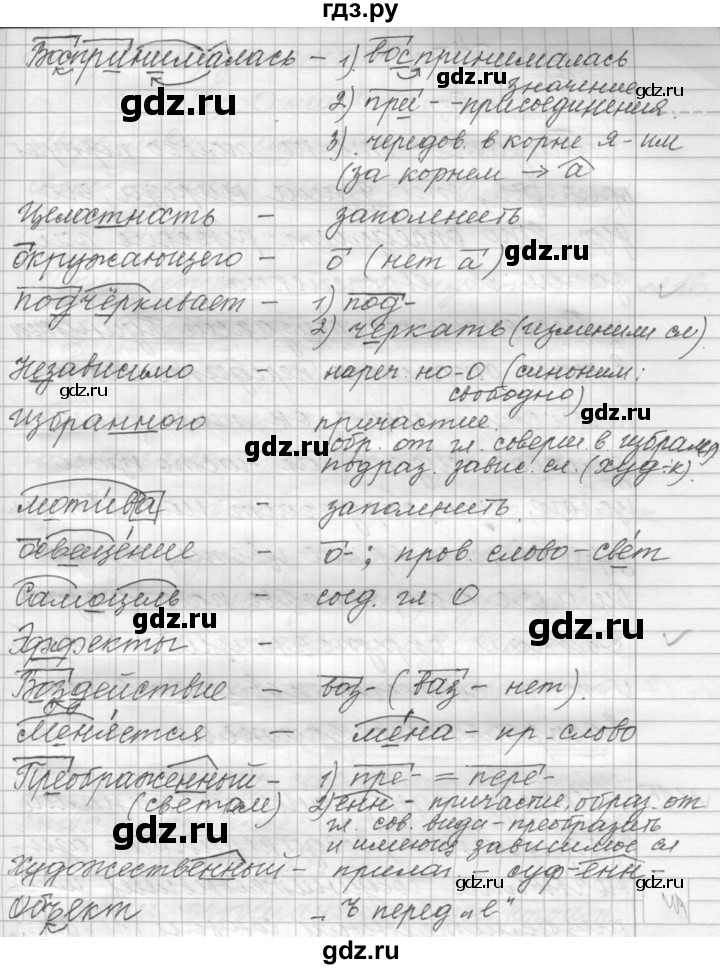 гдз.ру
Воспринималась – 1) воспринималась
gdz.ru gdz.ru
2) при- -значение присоединения.
3) чередов. в корне я-им
(за корнем → а
Целостность – запомнить.
gdz.ru
окружающего – о (нет а)
подчёркивает – 1) под-
2) черкать (изменили сл).
Независимо – нареч. на -о. (синоним:
свободно)
gdz.ru gdz.ru
избранного причастие.
gdz.ru
обр. от гл. соверш. в избрать,
подраз. завис. сл. (худ-к).
мотива – запомнить.
gdz.ru
освещение – о- ; пров. слово – свет
Самоцель – соед. гл. О
gdz.ru gdz.ru
Эффекты –
Воздействие – воз- (ваз- нет).
меняется – мена – пр. слово
Преображенный – 1) пре- = пере-
(светом) 2) енн – причастие, образ. от
gdz.ru gdz.ru
гл. сов. вида – преобразить
и имеющ. зависимое сл
художественный – прилаг. – суф -енн-
Объект – „ъ перед „е"
gdz.ru
gdz.ru